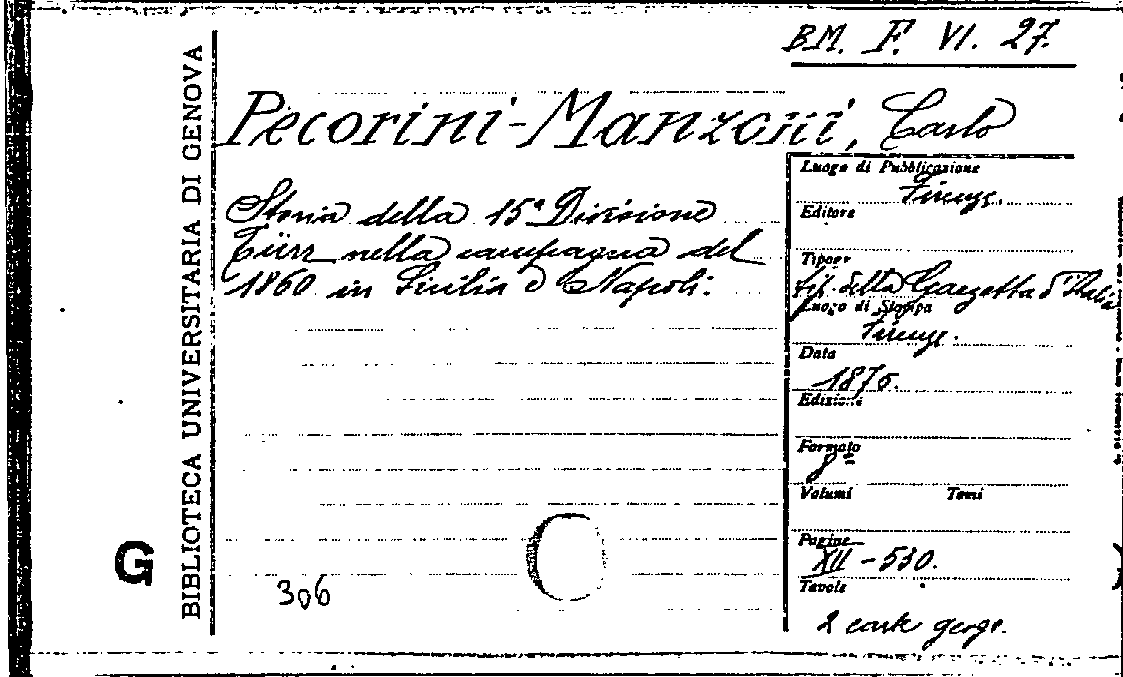 BM. F. VI. 27.
BIBLIOTECA UNIVERSITARIA DI GENOVA
G
Pecorini-Manzoni, Carlo
Storia della 15ª Divisione
Türr nella campagna del
1860 in Sicilia e Napoli.
306
Luogo di Pubblicazione
Firenze.
Editore
Tipogr
tip. della Gazzetta d'Italia
Luogo di Stampa
Firenze.
Data
1876.
Edizione
Formato
8º
Volumi Tomi
Pagine
XII - 530.
Tavole
2 carte geogr.